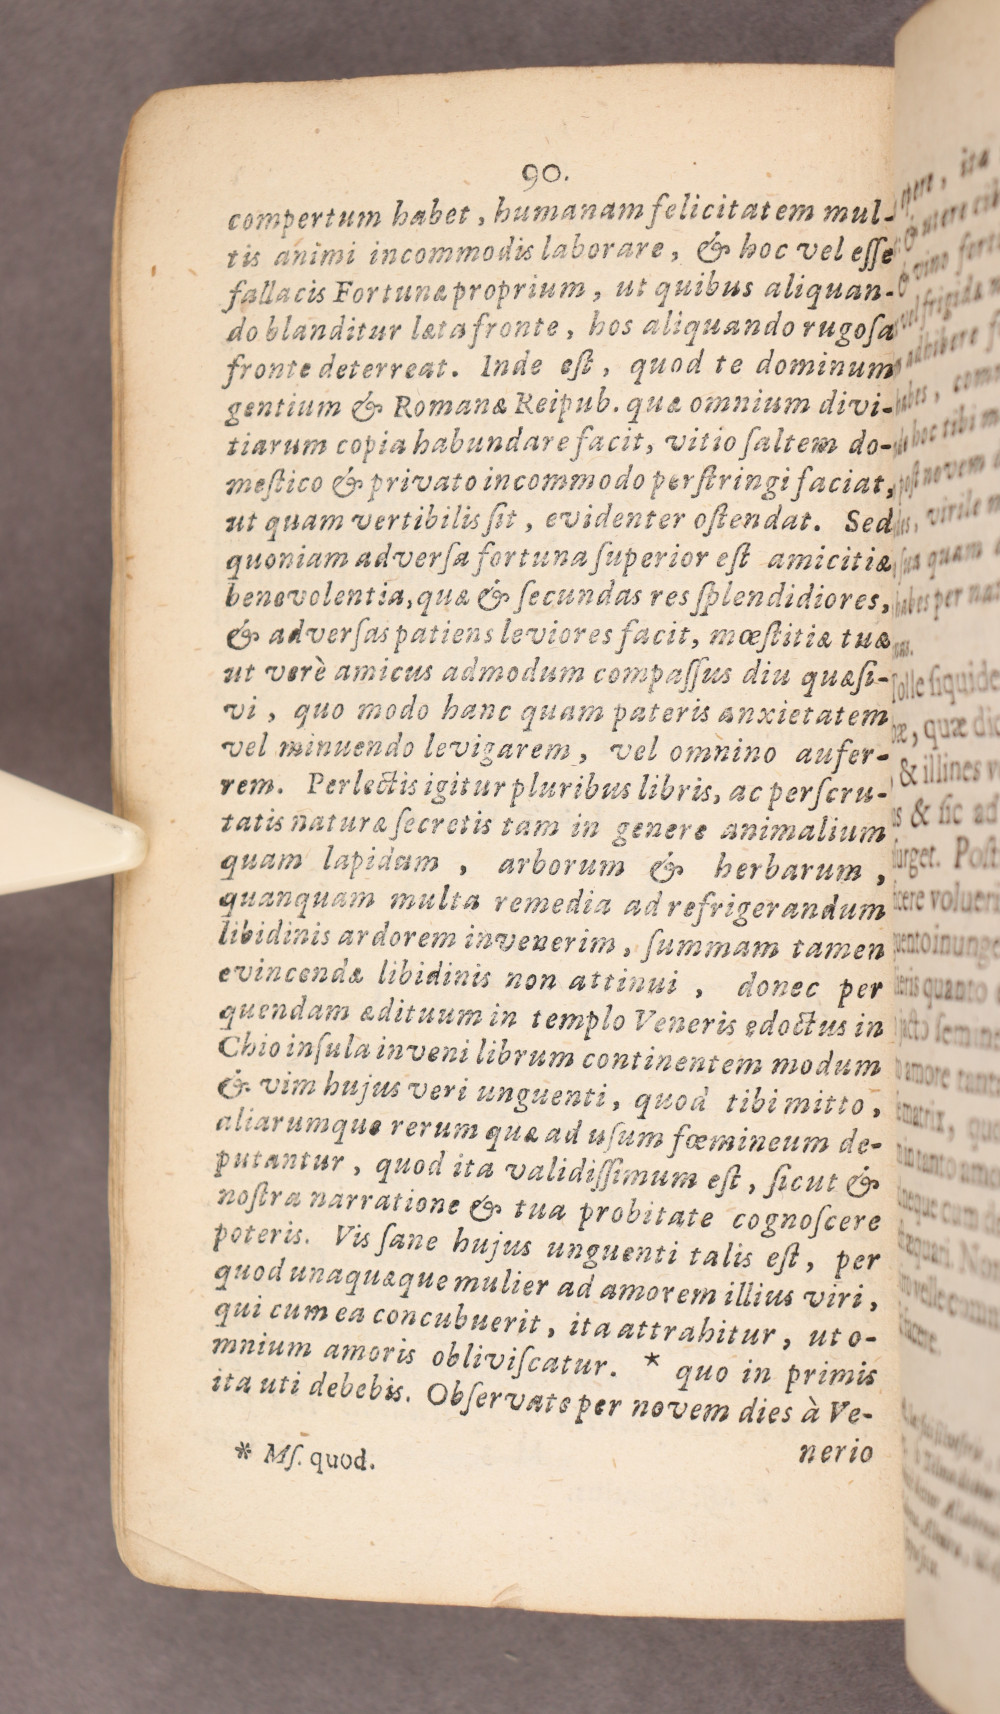 90.
compertum habet, humanam felicitatem mul-
tis animi incommodis laborare, & hoc vel eſſe
fallacis Fortunæ proprium, ut quibus aliquan-
do blanditur læta fronte, hos aliquando rugoſa
fronte deterreat. Inde eſt, quod te dominum
gentium & Romanæ Reipub. quæ omnium divi-
tiarum copia habundare facit, vitio ſaltem do-
meſtico & privato incommodo perſtringi faciat,
ut quam vertibilis ſit, evidenter oſtendat. Sed
quoniam adverſa fortuna ſuperior eſt amicitiæ
benevolentia, quæ & ſecundas res ſplendidiores,
& adverſas patiens leviores facit, mœſtitiæ tuæ
ut verè amicus admodum compaſſus diu quæſi-
vi, quo modo hanc quam pateris anxietatem
vel minuendo levigarem, vel omnino aufer-
rem. Perlectis igitur pluribus libris, ac perſcru-
tatis naturæ ſecretis tam in genere animalium
quam lapidum, arborum & herbarum,
quanquam multa remedia ad refrigerandum
libidinis ardorem invenerim, ſummam tamen
evincendæ libidinis non attinui, donec per
quendam ædituum in templo Veneris edoctus in
Chio inſula inveni librum continentem modum
& vim hujus veri unguenti, quod tibi mitto,
aliarumque rerum quæ ad uſum fœmineum de-
putantur, quod ita validiſſimum eſt, ſicut &
noſtra narratione & tua probitate cognoſcere
poteris. Vis ſane hujus unguenti talis eſt, per
quod unaquæque mulier ad amorem illius viri,
qui cum ea concubuerit, ita attrahitur, ut o-
mnium amoris obliviſcatur. * quo in primis
ita uti debebis. Obſervate per novem dies à Ve-
nerio
* Mſ. quod.